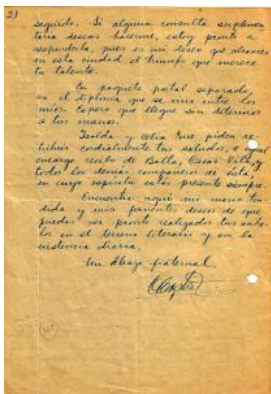 2)
seguido. Si alguna consulta suplemen
taria deseas hacerme, estoy pronto a
responderla, pues es mi deseo que alcances
en esta ciudad el triunfo que merece
tu talento.
En paquete postal separado,
va el diploma que se
Espero que llegue sin deterioro
a tus manos.
Isolda y Alia me piden re-
tribuir cordialmente tus saludos, e igual
encargo recibo de Balla, Oscar
todos los demás compañeros de ésta,
en cuyo espíritu estás presente siempre.
Encuentra aquí mi mano ten-
dida y mis fervientes deseos de que
puedas ver pronto realizados tus anhe-
los en el terreno literario y en la
existencia diaria.
Un abrazo fraternal